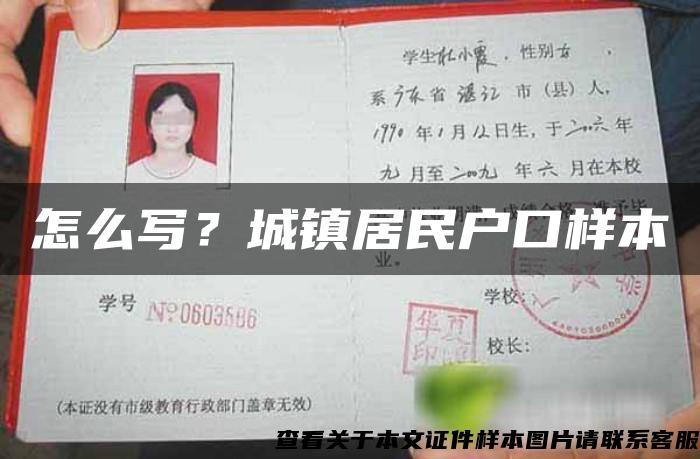 学生杜小霞，性别女，
系广东省湛江市（县）人，
1990年1月12日生，于二00六年
九月至二00九年六月在本校
怎么写？城镇居民户口样本
业。
学号 №0603586
学校：
华夏
印
校长：
(本证没有市级教育行政部门盖章无效)
查看关于本文证件样本图片请联系客服